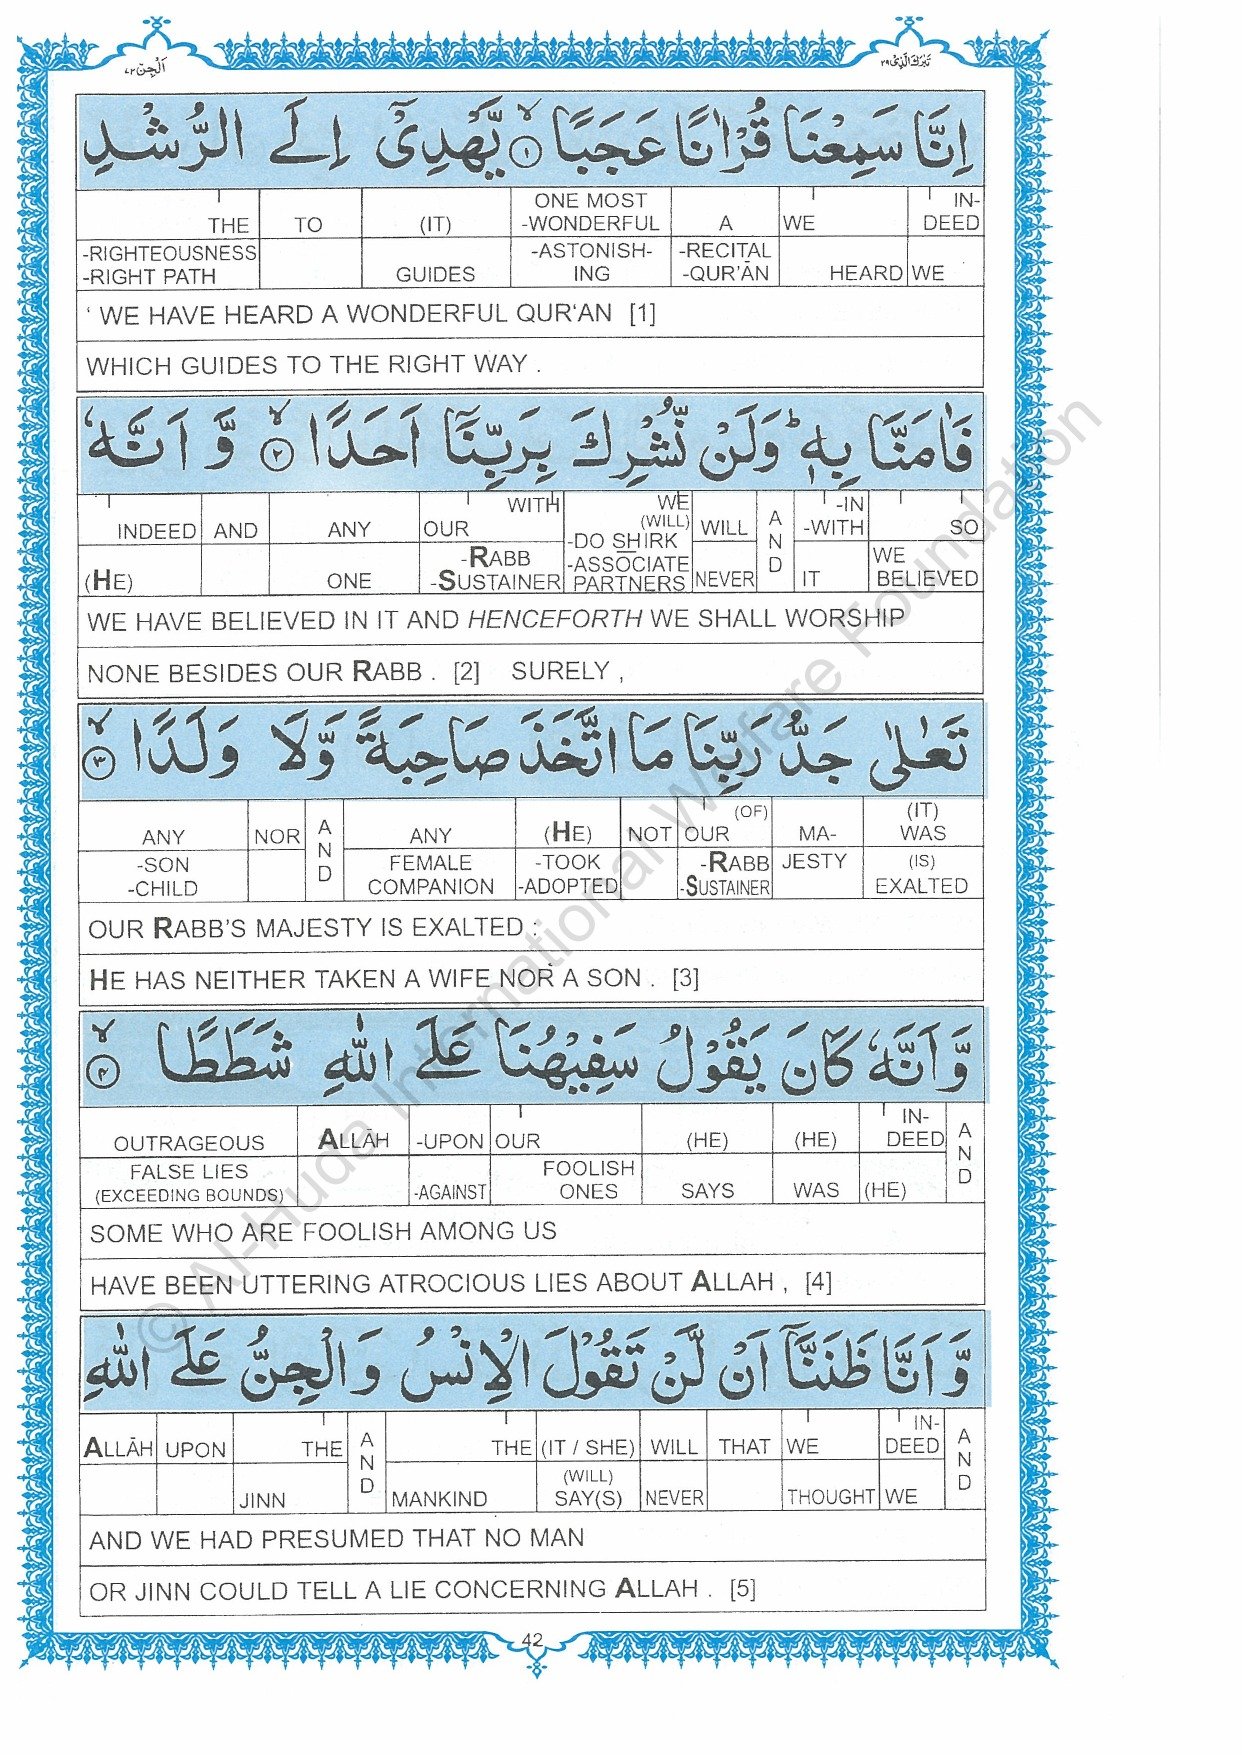 اَلْجِنّ ٧٢
تَبٰرَكَ الَّذِیْ ٢٩
اِنَّا سَمِعْنَا قُرْاٰنًا عَجَبًا ۙ﴿١﴾ یَّهْدِیْۤ اِلَی الرُّشْدِ
THE TO (IT) ONE MOST -WONDERFUL A WE IN-DEED
-RIGHTEOUSNESS -RIGHT PATH GUIDES -ASTONISH-ING -RECITAL -QUR'ĀN HEARD WE
‘ WE HAVE HEARD A WONDERFUL QUR‘AN [1]
WHICH GUIDES TO THE RIGHT WAY .
فَاٰمَنَّا بِهٖ ؕ وَلَنْ نُّشْرِكَ بِرَبِّنَاۤ اَحَدًا ۙ﴿٢﴾ وَّ اَنَّهٗ
INDEED AND ANY OUR WITH WE (WILL) WILL AND -IN -WITH SO
(HE) ONE -RABB -SUSTAINER -DO SHIRK -ASSOCIATE PARTNERS NEVER IT WE BELIEVED
WE HAVE BELIEVED IN IT AND HENCEFORTH WE SHALL WORSHIP
NONE BESIDES OUR RABB . [2] SURELY ,
تَعٰلٰی جَدُّ رَبِّنَا مَا اتَّخَذَ صَاحِبَةً وَّلَا وَلَدًا ۙ﴿٣﴾
ANY NOR AND ANY (HE) NOT OUR (OF) MA- (IT) WAS
-SON -CHILD FEMALE COMPANION -TOOK -ADOPTED -RABB -SUSTAINER JESTY (IS) EXALTED
OUR RABB'S MAJESTY IS EXALTED :
HE HAS NEITHER TAKEN A WIFE NOR A SON . [3]
وَّ اَنَّهٗ كَانَ یَقُوْلُ سَفِیْهُنَا عَلَی اللّٰهِ شَطَطًا ۙ﴿٤﴾
OUTRAGEOUS ALLĀH -UPON OUR (HE) (HE) IN-DEED AND
FALSE LIES (EXCEEDING BOUNDS) -AGAINST FOOLISH ONES SAYS WAS (HE)
SOME WHO ARE FOOLISH AMONG US
HAVE BEEN UTTERING ATROCIOUS LIES ABOUT ALLAH , [4]
وَّ اَنَّا ظَنَنَّاۤ اَنْ لَّنْ تَقُوْلَ الْاِنْسُ وَ الْجِنُّ عَلَی اللّٰهِ
ALLĀH UPON THE AND THE (IT / SHE) WILL THAT WE IN-DEED AND
JINN MANKIND (WILL) SAY(S) NEVER THOUGHT WE
AND WE HAD PRESUMED THAT NO MAN
OR JINN COULD TELL A LIE CONCERNING ALLAH . [5]
42
© Al-Huda International Welfare Foundation